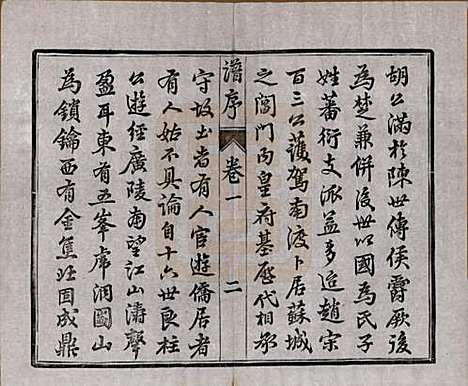 胡公滿於陳世傳侯爵厥後
為楚兼併後世以國為氏子
姓蕃衍支派益多迨趙宋
百三公護駕南渡卜居蘇城
之閶門內皇府基歷代相承
譜序 卷一 二
守故土者有人宦遊僑居者
有人姑不具論自十六世良柱
公遊經廣陵南望江山濤聲
盈耳東有五峯虎洞圌山
為鎖鑰西有金焦北固成鼎